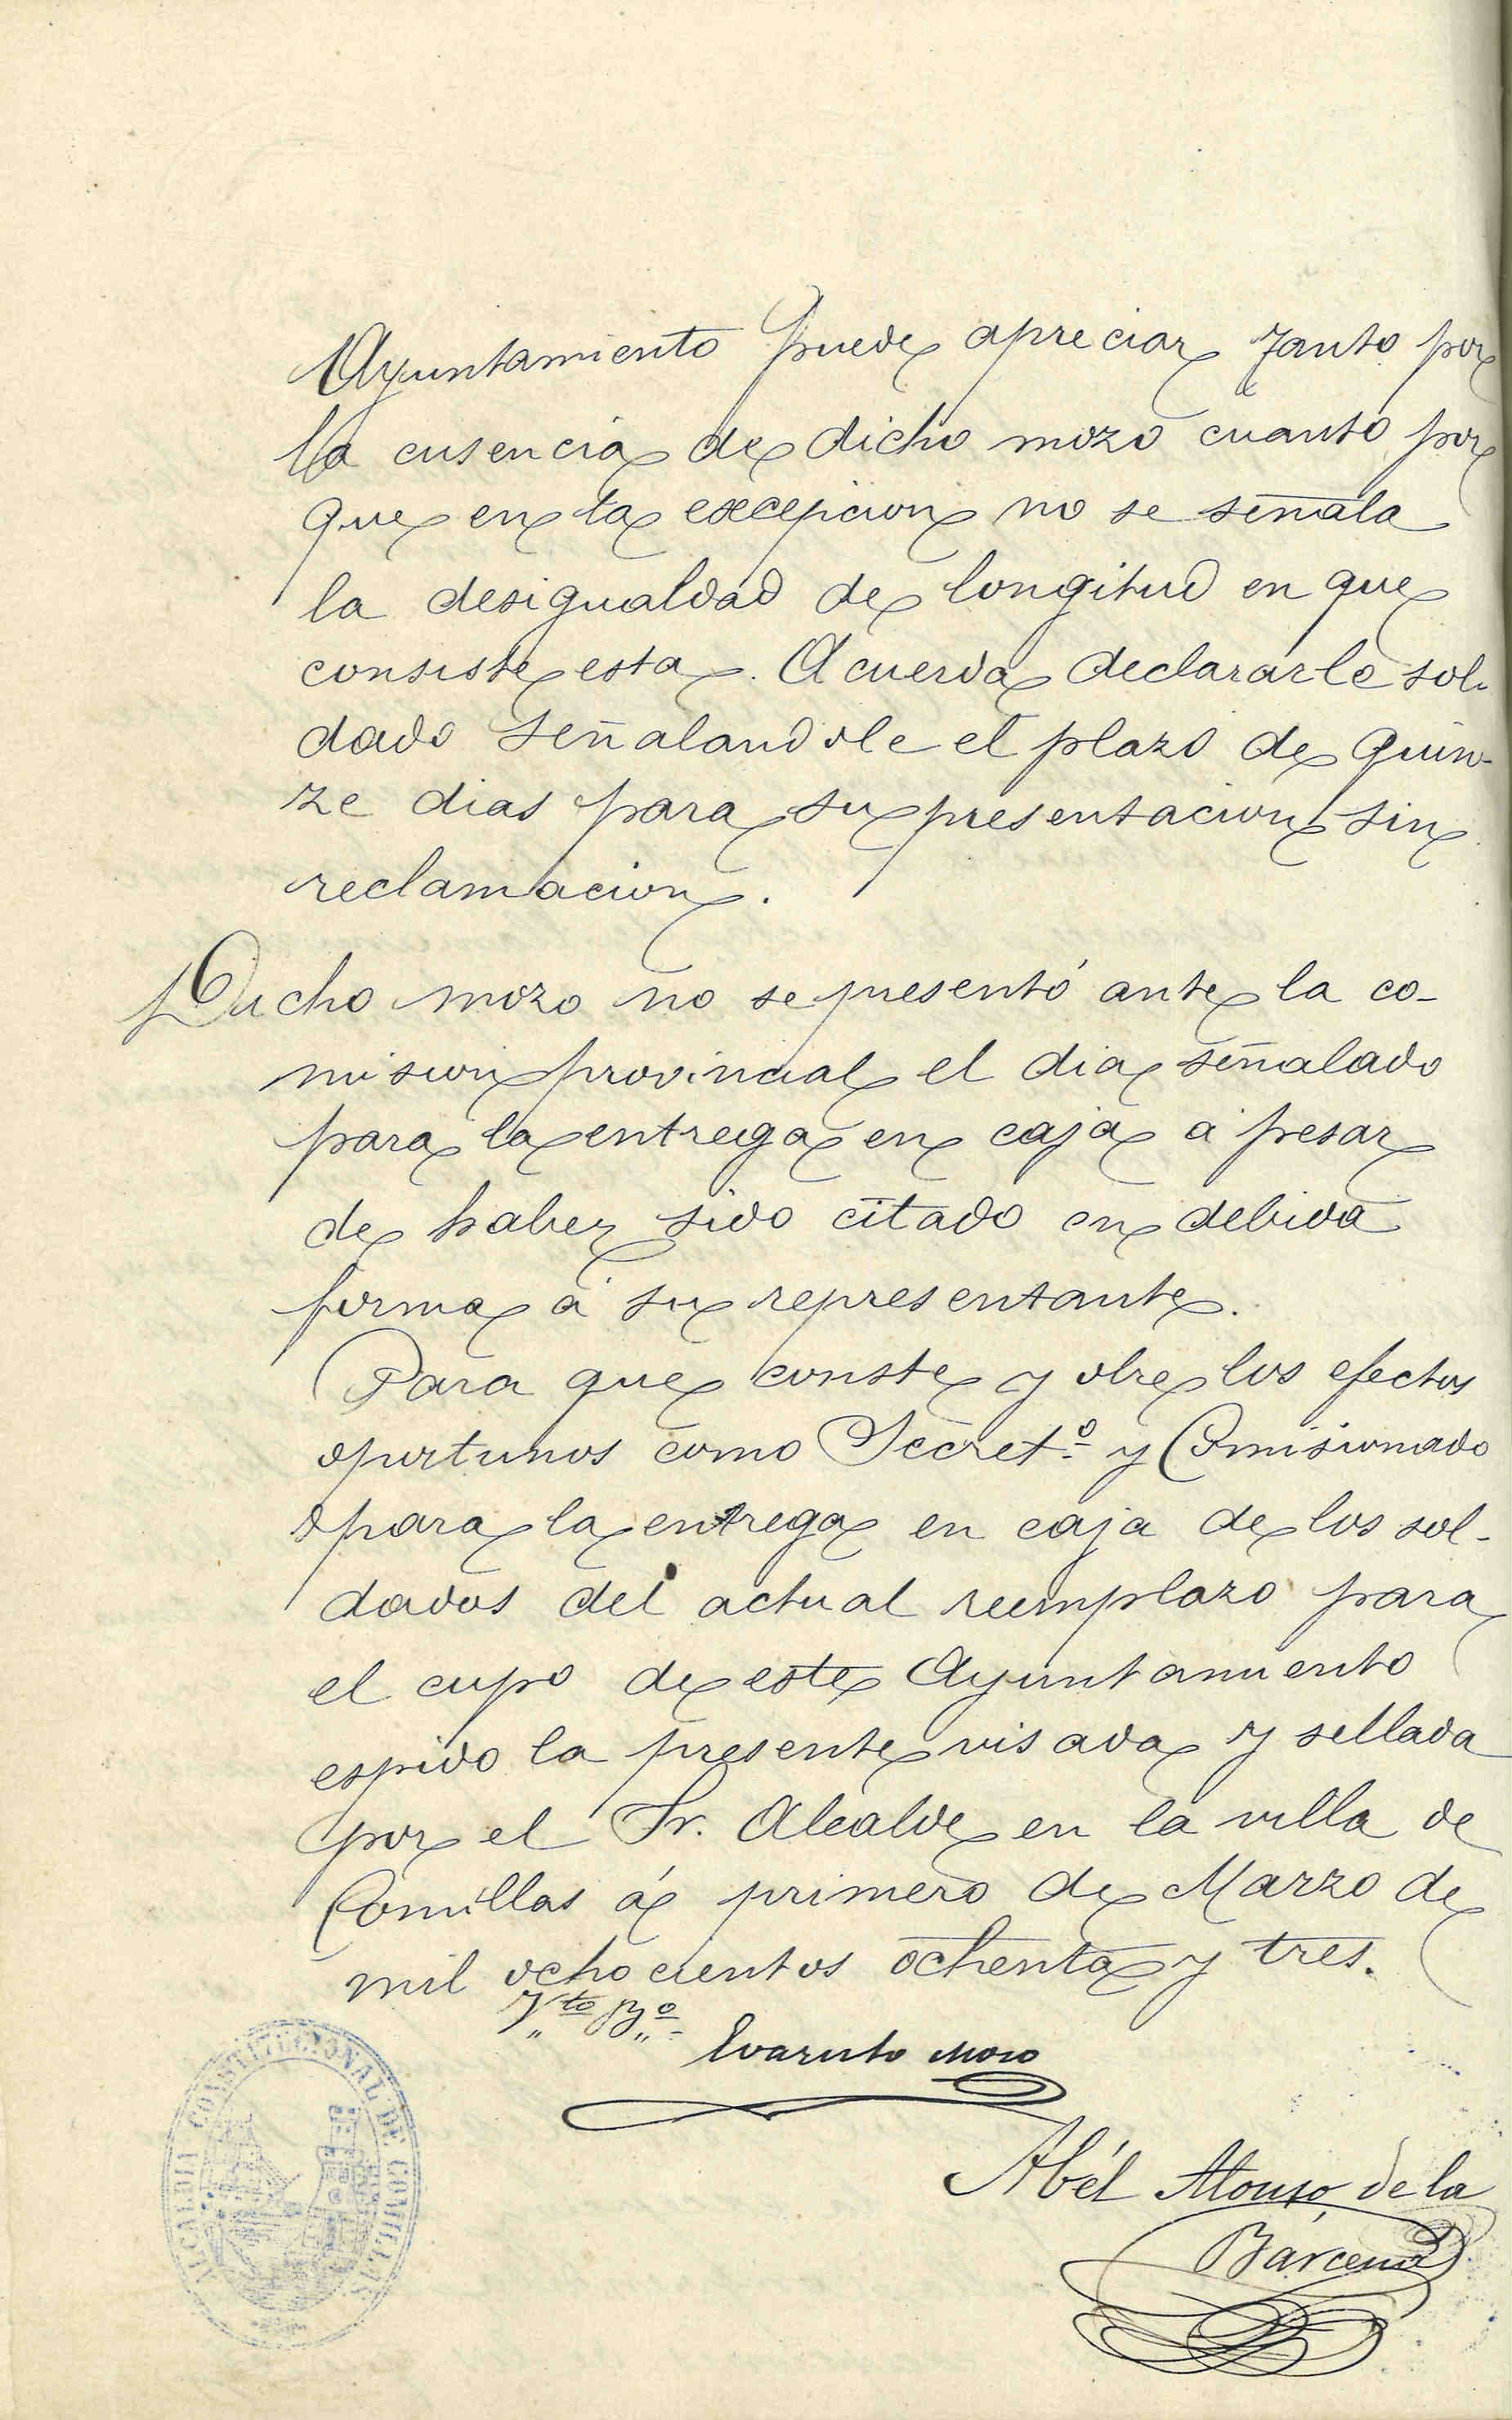 Ayuntamiento puede apreciar tanto por
la ausencia de dicho mozo cuanto por
que en la excepcion no se señala
la desigualdad de longitud en que
consiste esta. Acuerda declararle sol-
dado señalandole el plazo de quin-
ze dias para su presentacion sin
reclamacion.
Dicho mozo no se presentó ante la co-
mision provincial el dia señalado
para la entrega en caja á pesar
de haber sido citado en debida
forma á su representante.
Para que conste y obre los efectos
oportunos como Secretº y Comisionado
para la entrega en caja de los sol-
dados del actual reemplazo para
el cupo de este Ayuntamiento
espido la presente visada y sellada
por el Sr. Alcalde en la villa de
Comillas á primero de Marzo de
mil ochocientos ochenta y tres.
Vto Bº
Evaristo Moro
Abél Alonso de la
Bárcena
ALCALDIA CONSTITUCIONAL DE COMILLAS